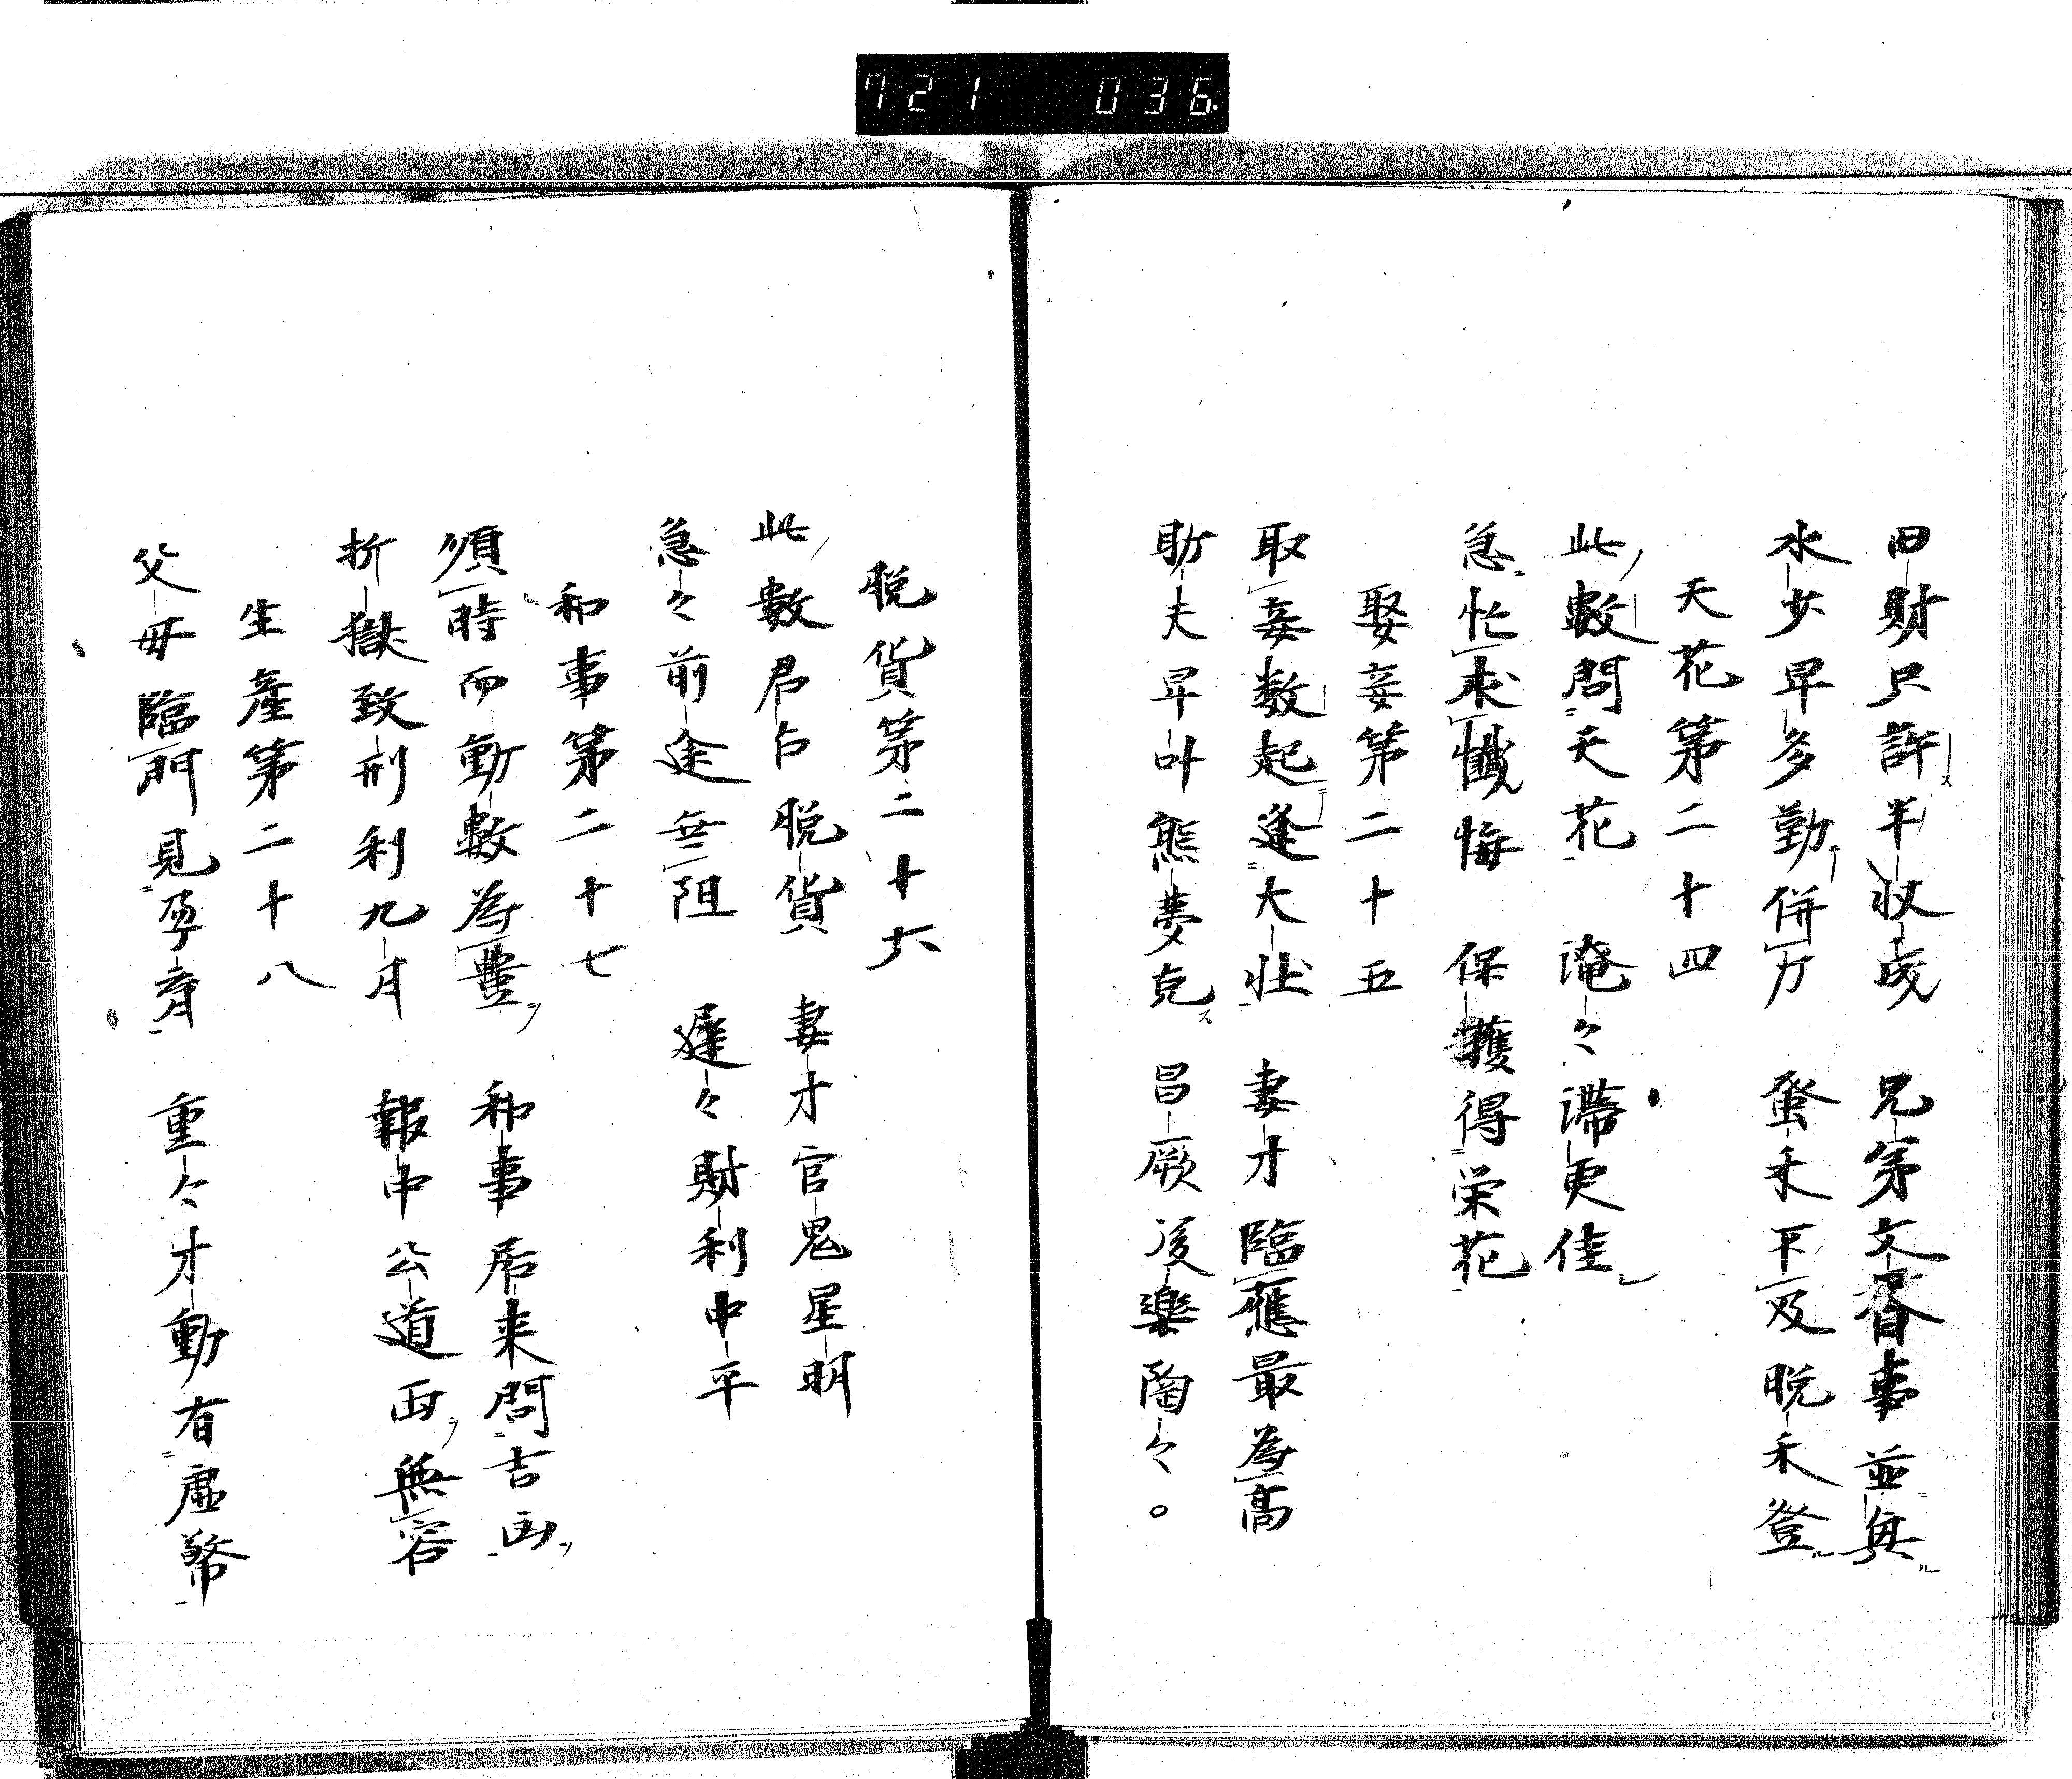 721 036
田財只許半収成 兄弟文昏事並無
水少旱多勤併力 蚤禾不及晩禾登
天花第二十四
此數問天花 淹々滞更佳
急忙求懺悔 保護得栄花
娶妾第二十五
取妾数起逢大壮 妻才臨應最為高
助夫早叶熊夢克 昌厥後樂陶々。
脱貨第二十六
此數君占脱貨 妻才官鬼星明
急々前途無阻 遅々財利中平
和事第二十七
順時而動數為豊 和事君来問吉凶
折獄致刑利九月 報中公道両無容
生產第二十八
父毋臨門見孕育 重々才動有虚驚